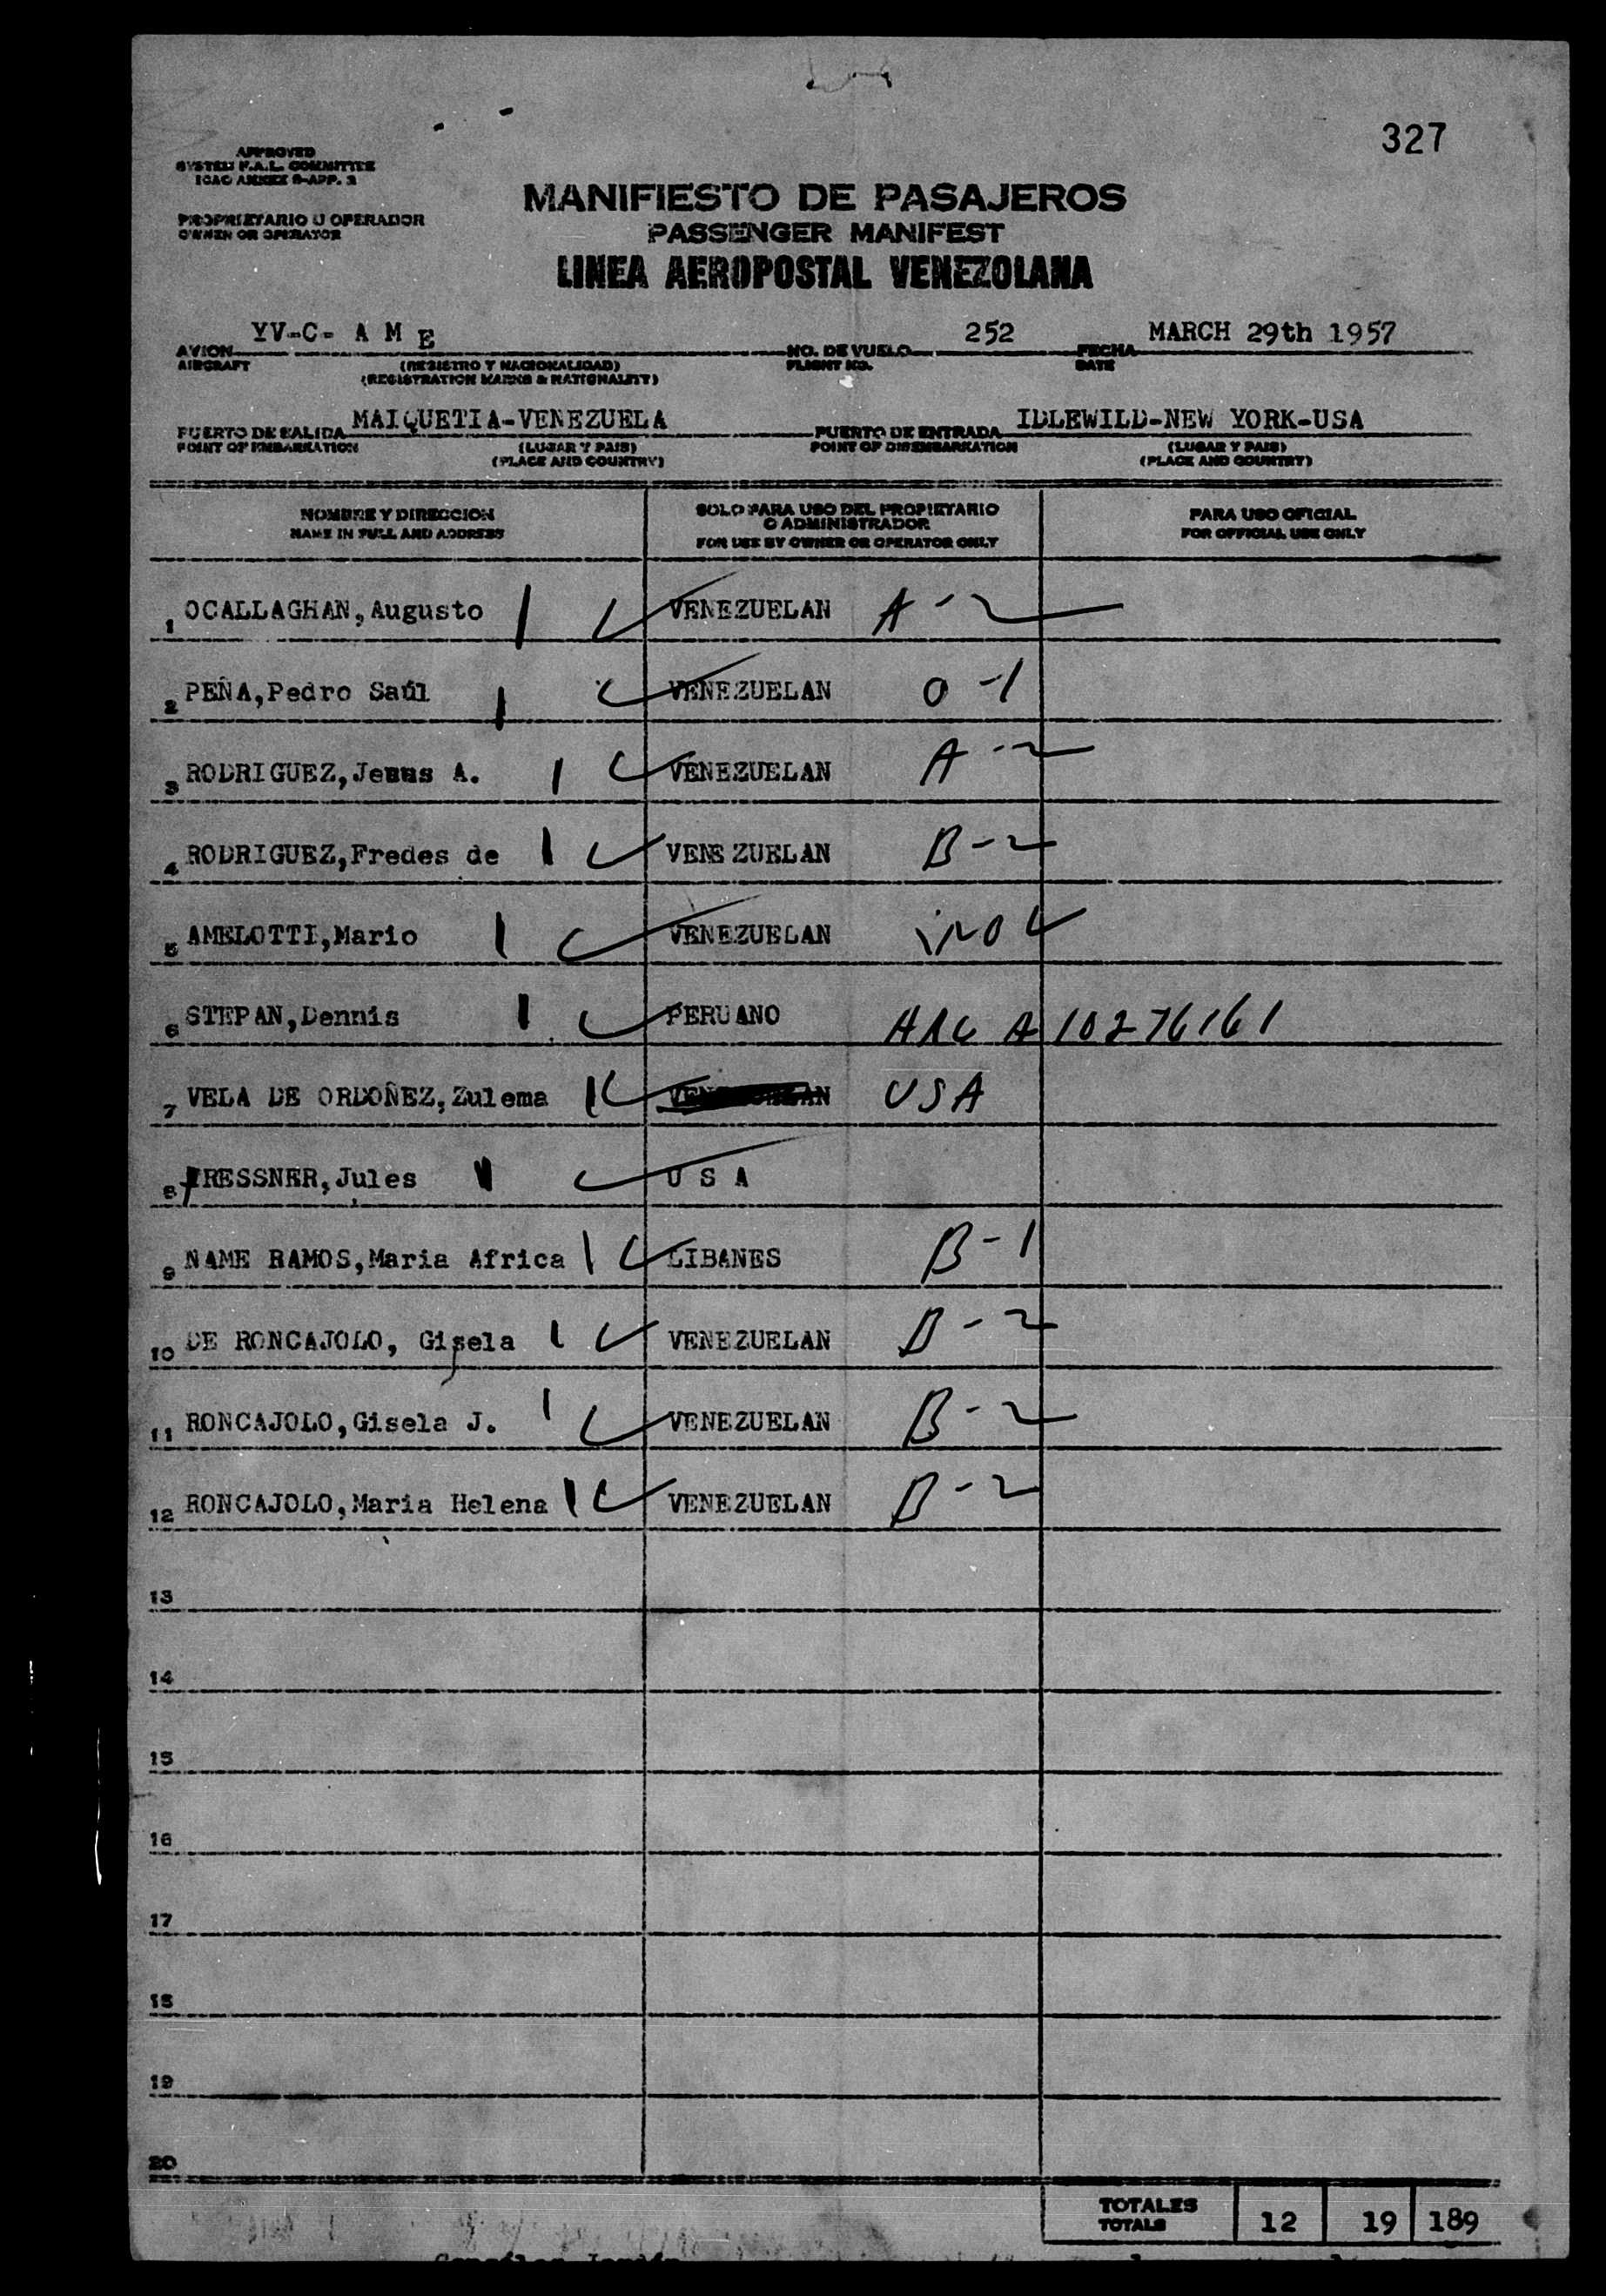 327
APPROVED
SYSTEM F.A.L. COMMITTEE
ICAO ANNEX 9-APP. 3
MANIFIESTO DE PASAJEROS
PROPRIETARIO U OPERADOR
OWNER OR OPERATOR
PASSENGER MANIFEST
LINEA AEROPOSTAL VENEZOLANA
AVION YV-C- A M E NO. DE VUELO 252 FECHA MARCH 29th 1957
AIRCRAFT (REGISTRO Y NACIONALIDAD) FLIGHT NO. DATE
(REGISTRATION MARKS & NATIONALITY)
PUERTO DE SALIDA MAIQUETIA-VENEZUELA PUERTO DE ENTRADA IDLEWILD-NEW YORK-USA
POINT OF EMBARKATION (LUGAR Y PAIS) POINT OF DISEMBARKATION (LUGAR Y PAIS)
(PLACE AND COUNTRY) (PLACE AND COUNTRY)
NOMBRE Y DIRECCION SOLO PARA USO DEL PROPIETARIO PARA USO OFICIAL
O ADMINISTRADOR
NAME IN FULL AND ADDRESS FOR USE BY OWNER OR OPERATOR ONLY FOR OFFICIAL USE ONLY
1 OCALLAGHAN, Augusto VENEZUELAN A-2
2 PEÑA, Pedro Saúl VENEZUELAN O-1
3 RODRIGUEZ, Jesus A. VENEZUELAN A-2
4 RODRIGUEZ, Fredes de VENEZUELAN B-2
5 AMELOTTI, Mario VENEZUELAN
6 STEPAN, Dennis PERUANO ARC A10276161
7 VELA DE ORDOÑEZ, Zulema USA
8 TRESSNER, Jules U S A
9 NAME RAMOS, Maria Africa LIBANES B-1
10 DE RONCAJOLO, Gisela VENEZUELAN B-2
11 RONCAJOLO, Gisela J. VENEZUELAN B-2
12 RONCAJOLO, Maria Helena VENEZUELAN B-2
13
14
15
16
17
18
19
20
TOTALES
TOTALS 12 19 189